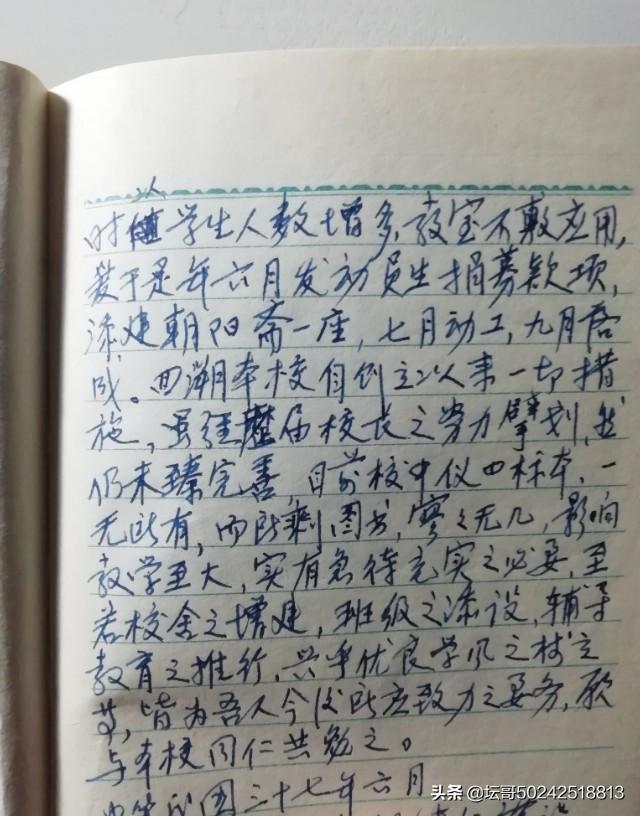 以
时 学生人数增多,教室不敷应用,
爰于是年六月发动员生捐募款项,
添建朝阳斋一座,七月动工,九月落
成。回溯本校自创立以来一切措
施,虽经历届校长之努力擘划,然
仍未臻完善,目前校中仪四标本,一
无所有,而所剩图书,寥々无几,影响
教学至大,实有急待充实之必要,至
若校舍之增建,班级之添设,辅导
教育之推行,与乎优良学风之树立
等,皆为吾人今后所应致力之要务,愿
与本校同仁共勉之。
民国三十七年六月
头条 @坛哥50242518813